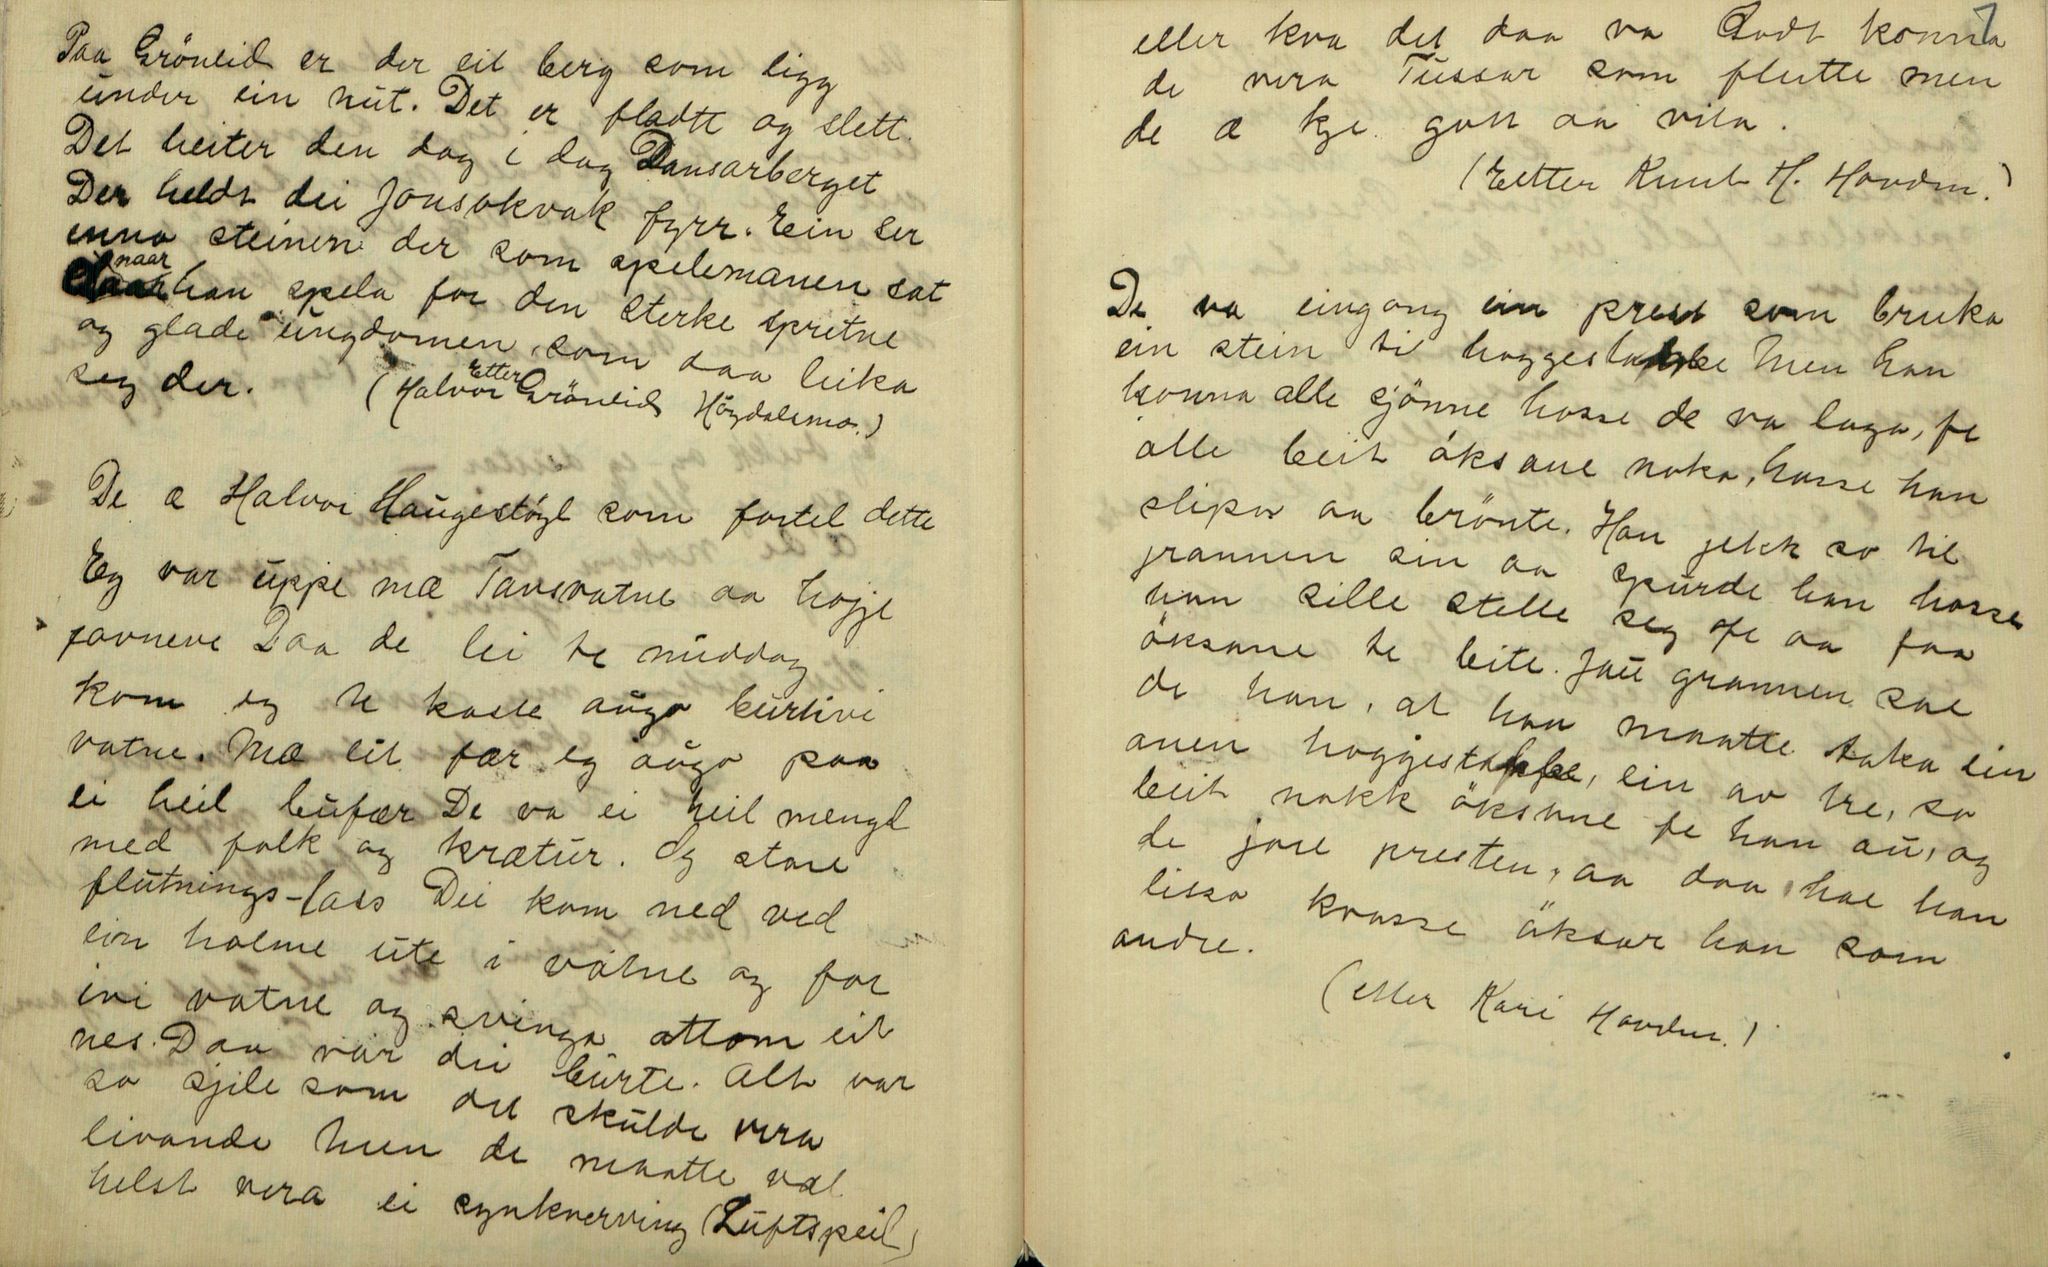 Paa Gröneid er der eit berg som ligg
under ein nut. Det er fladtt og slett.
Det heiter den dag i dag Dansarberget
Der heldt dei Jonsokvak fyrr. Ein ser
enno steinen der som spelemanen sat
naar
han spela for den sterke spretne
og glade ungdomen, som daa leika
seg der.
Etter
(Halvor Gröneid Högdalsmo.)
De æ Halvor Haugestöyl som fortel dette
Eg var uppe mæ Tansvatne aa hogje
favneve Daa de lei te middag
kom eg te kaste augo burtivi
vatne. Mæ eit fær eg augo paa
ei heil bufær De va ei heil mengd
med folk og krætur. Og store
flutnings-lass Dei kom ned ved
ein holme ute i vatne og for
ivi vatne og svinga attom eit
nes. Daa var dei burte. Alt var
so sjile som det skulde vera
livande Men de maatte væl
helst vera ei synkverving (Luftspeil)
7
eller kva det daa va Godt konna
de vera Tussar som flutte men
de æ kje gott aa vita.
(Etter Knut H. Hovden.)
De va eingong ein prest som bruka
ein stein ti hoggestabbe Men han
konna alle sjönne hosse de va laga, fe
alle beit öksane noko, hosse han
slipa aa brönte. Han jekk so til
grannen sin aa spurde han hosse
han sille stelle seg fe aa faa
öksane te bite. Jau grannen sae
de han, at han maatte taka ein
anen hoggjestabbe, ein av tre, so
beit nokk öksane fe han au, og
de jore presten, aa daa hae han
likso kvasse öksar han som
andre.
(etter Kari Hovden.)